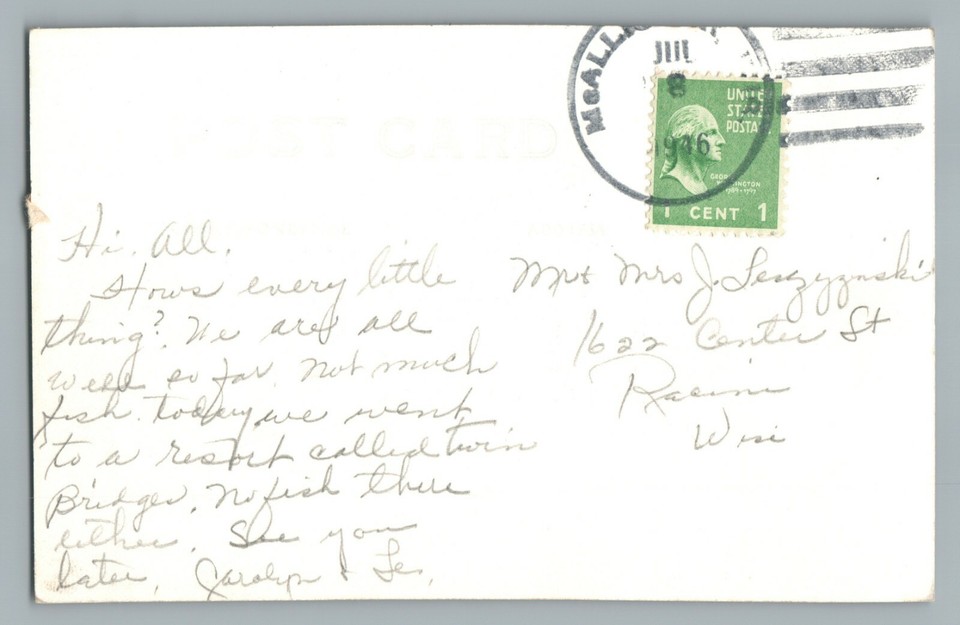 McALLI
JUL
8
1946
UNITED
STATES
POSTAGE
GEORGE
WASHINGTON
1789-1797
1 CENT 1
POST CARD
Hi. All.
Hows every little
thing? We are all
well so far. Not much
fish. today we went
to a resort called twin
Bridges. No fish there
either. See you
later, Carolyn & Les.
Mr & Mrs J. Leszyznski
1622 Center St
Racine
Wisc